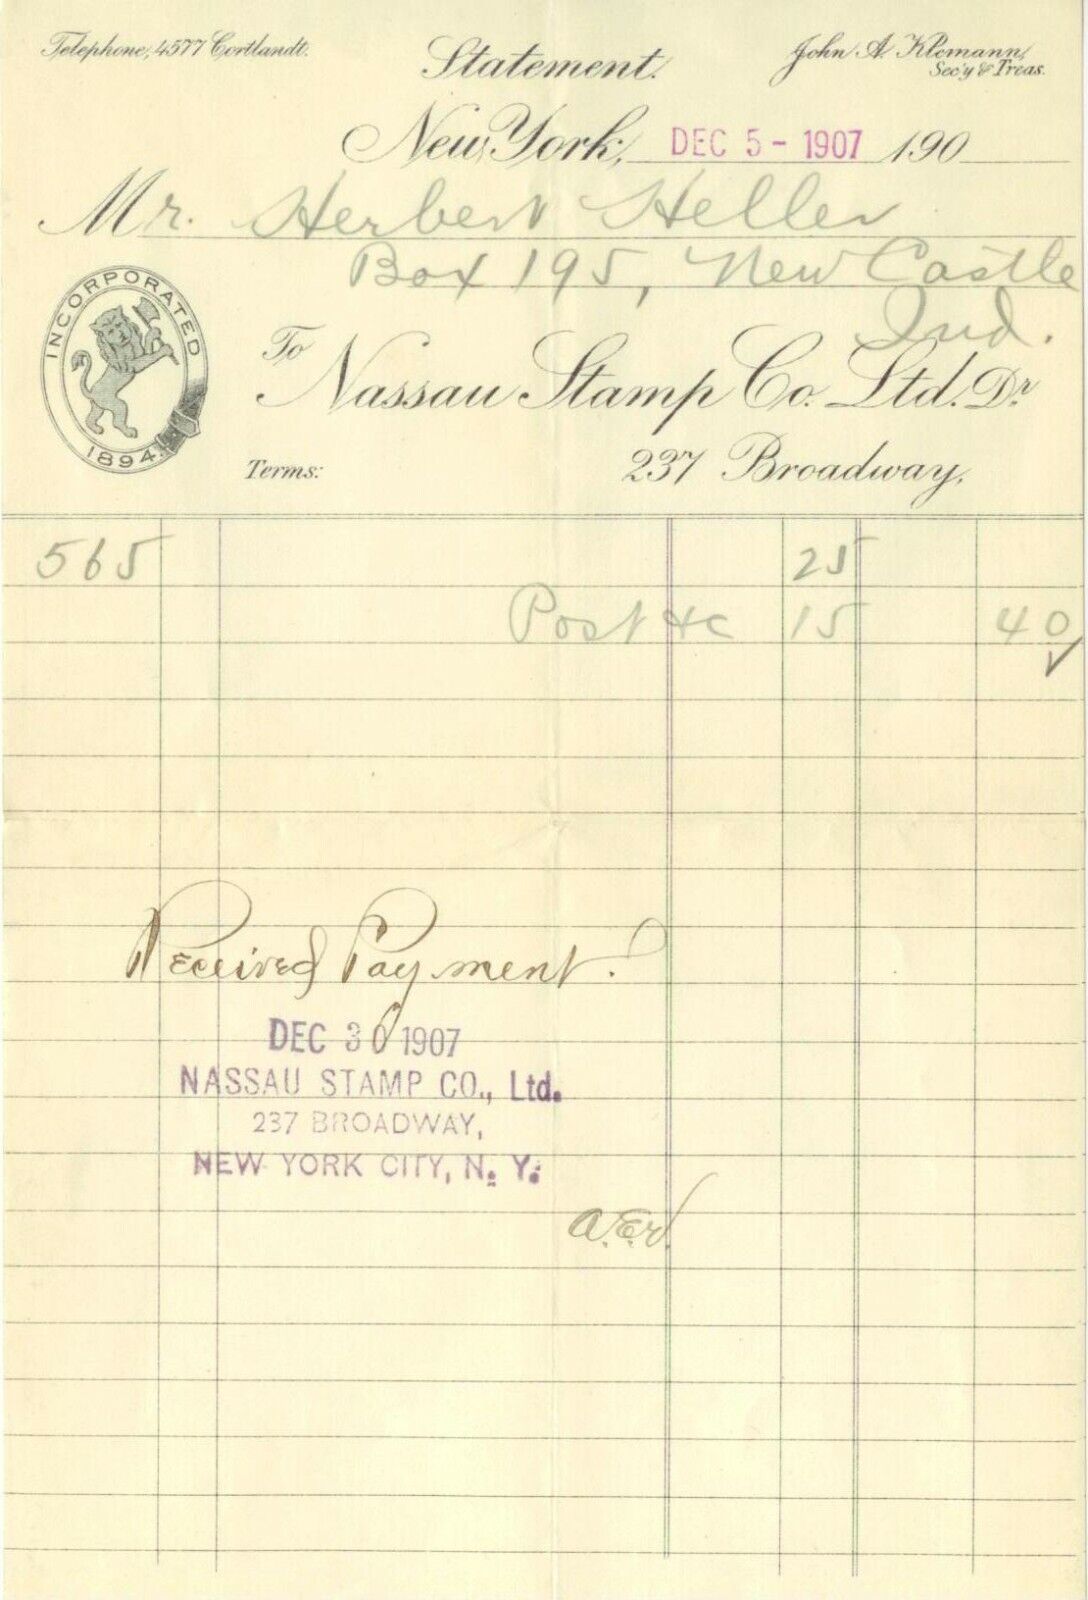 Telephone, 4577 Cortlandt.
Statement.
John A. Klemann,
Sec'y & Treas.
New York, DEC 5 - 1907 190
Mr. Herbert Heller
Box 195, New Castle
Ind.
INCORPORATED
1894.
To Nassau Stamp Co. Ltd. Dr
Terms: 237 Broadway,
565 25
Post &c 15 40
Received Payment.
DEC 30 1907
NASSAU STAMP CO., Ltd.
237 BROADWAY,
NEW YORK CITY, N. Y.